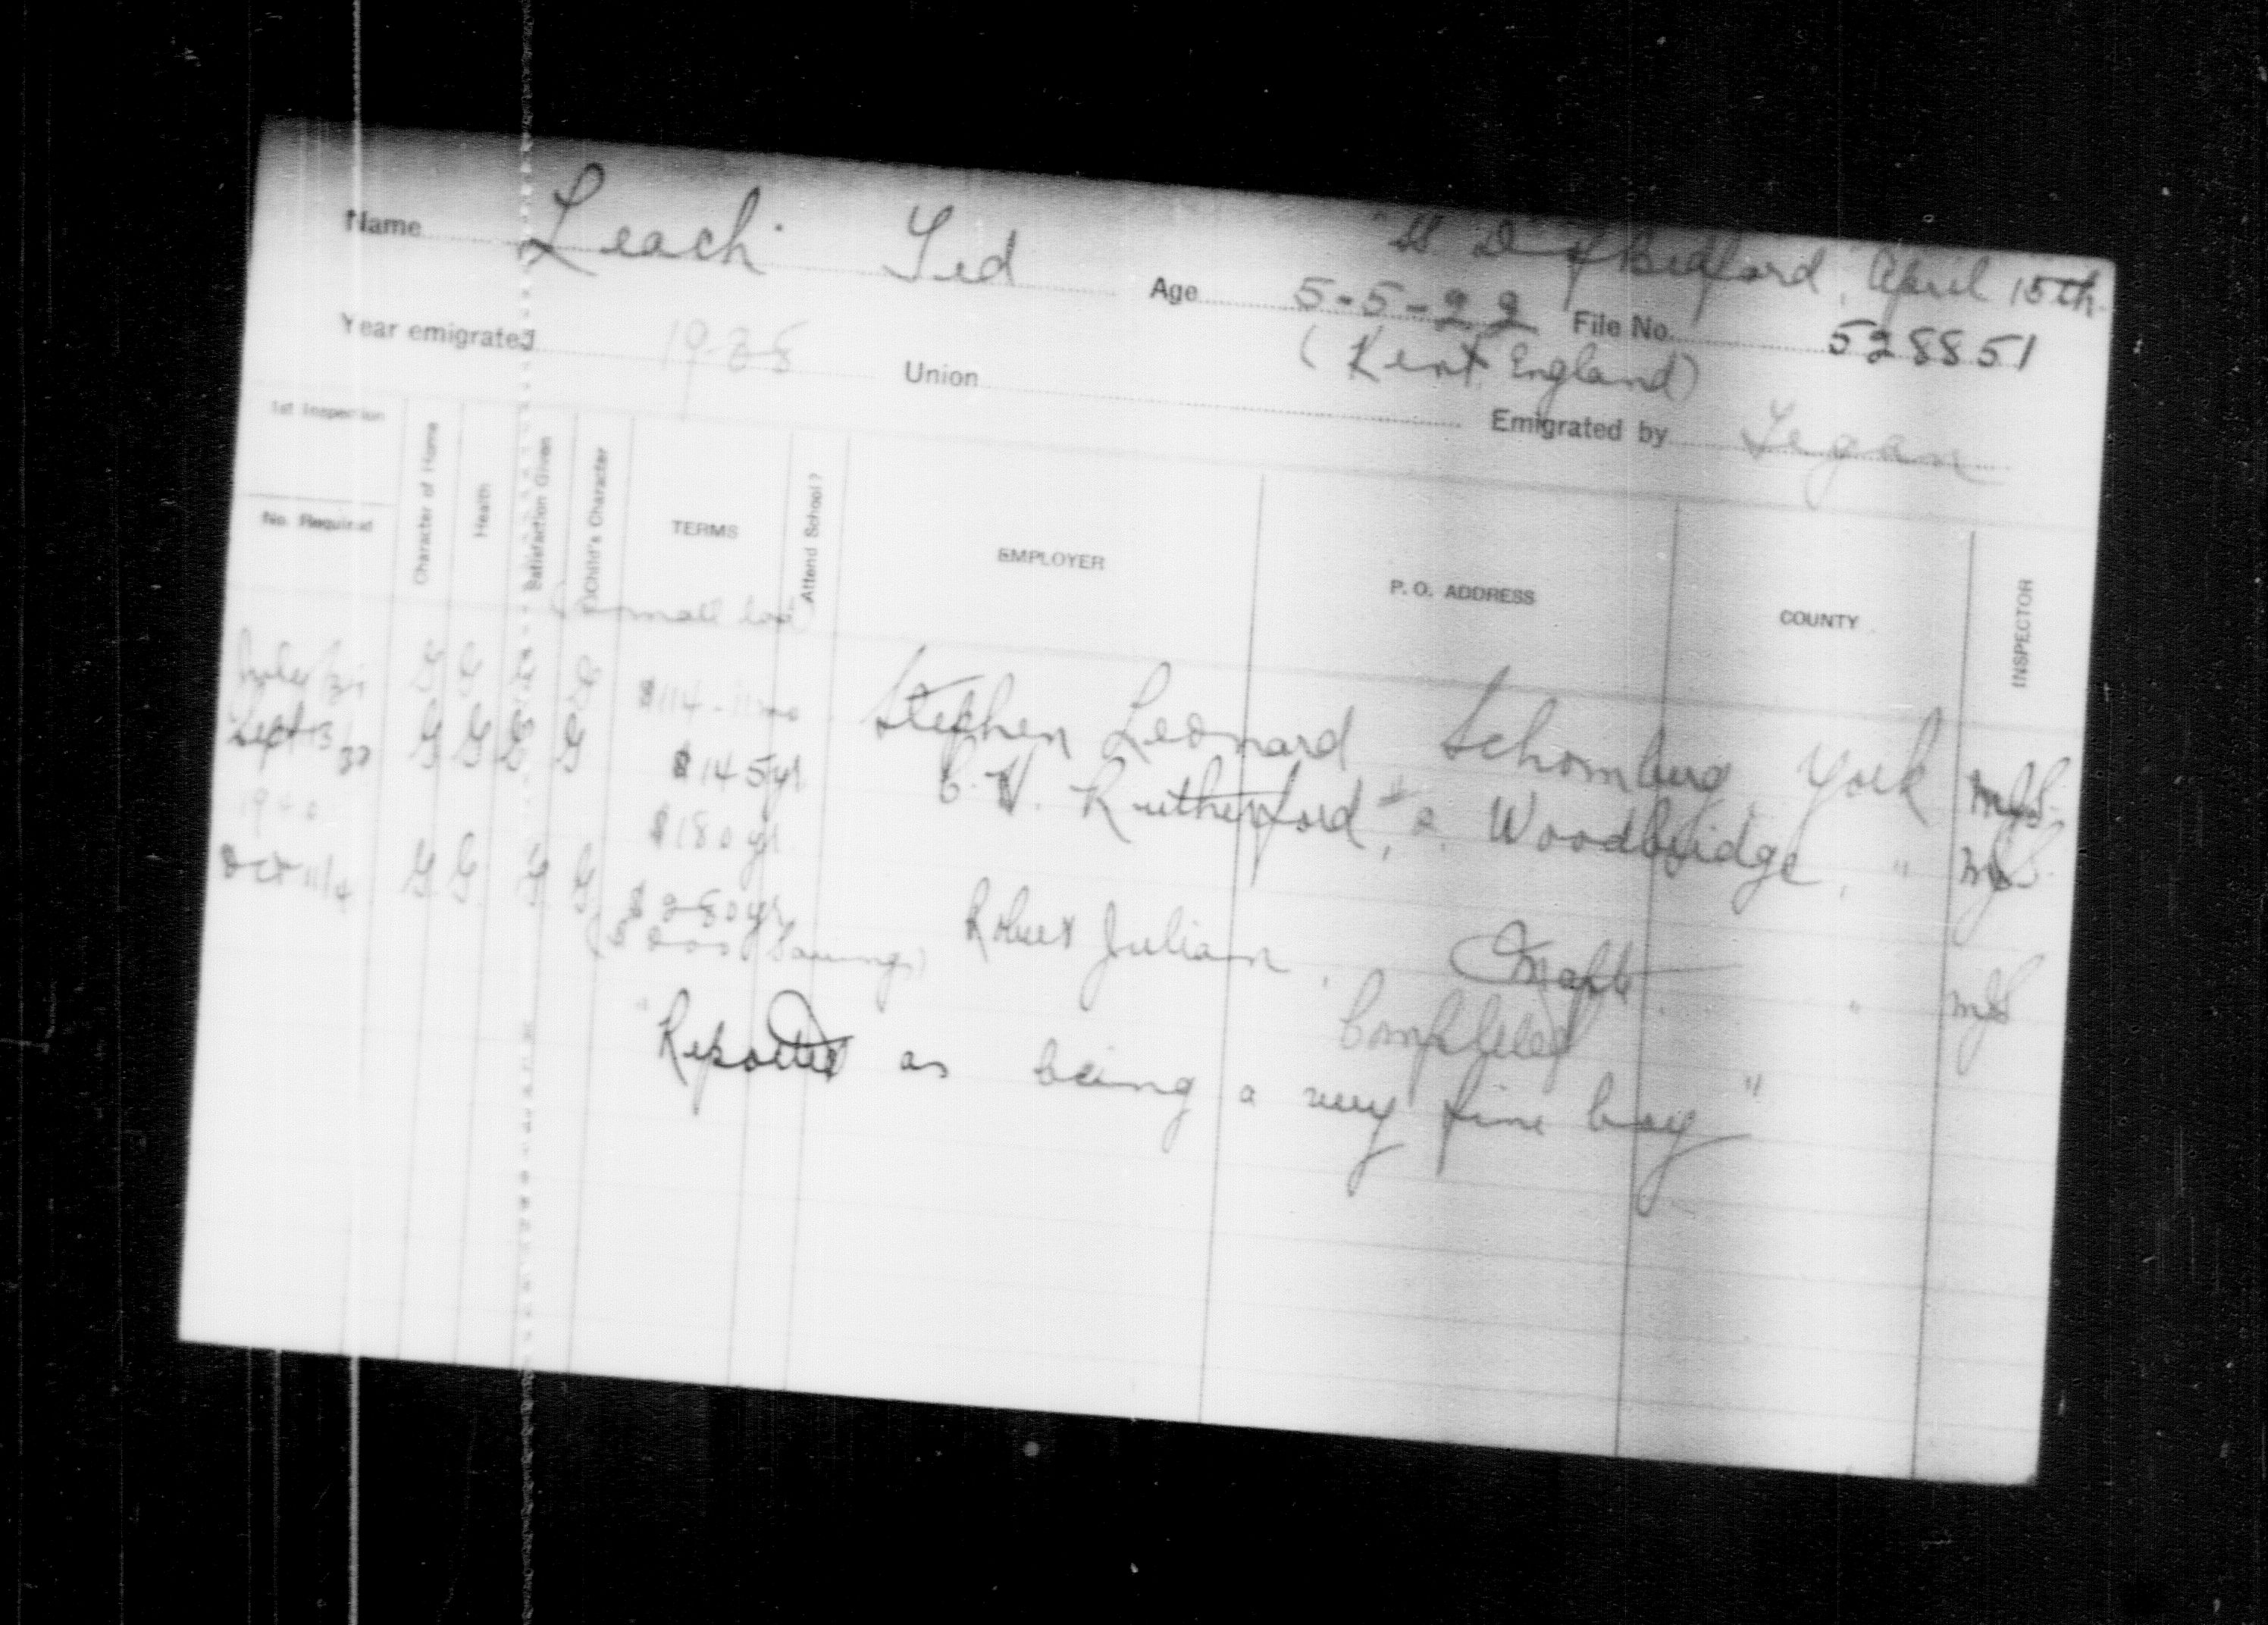 "S.S. D. of Bedford, April 15th.
Name Leach Ted Age 5-5-22 File No. 528851
(Kent England)
Year emigrated 1938 Union Emigrated by Fegan
1st Inspection
No. Required Character of Home Health Satisfaction Given Child's Character TERMS Attend School? EMPLOYER P. O. ADDRESS COUNTY INSPECTOR
(Small lad
July G G G G $114 Stephen Leonard Schomberg York
Sept 13/39 G G G G $145 yr C. W. Rutherford, #2. Woodbridge, "
1940 $180 yr
Oct 11/4 G G G G $280 yr Robert Julian, Maple. "
(Has savings)
Completed
"Reported as being a very fine boy"